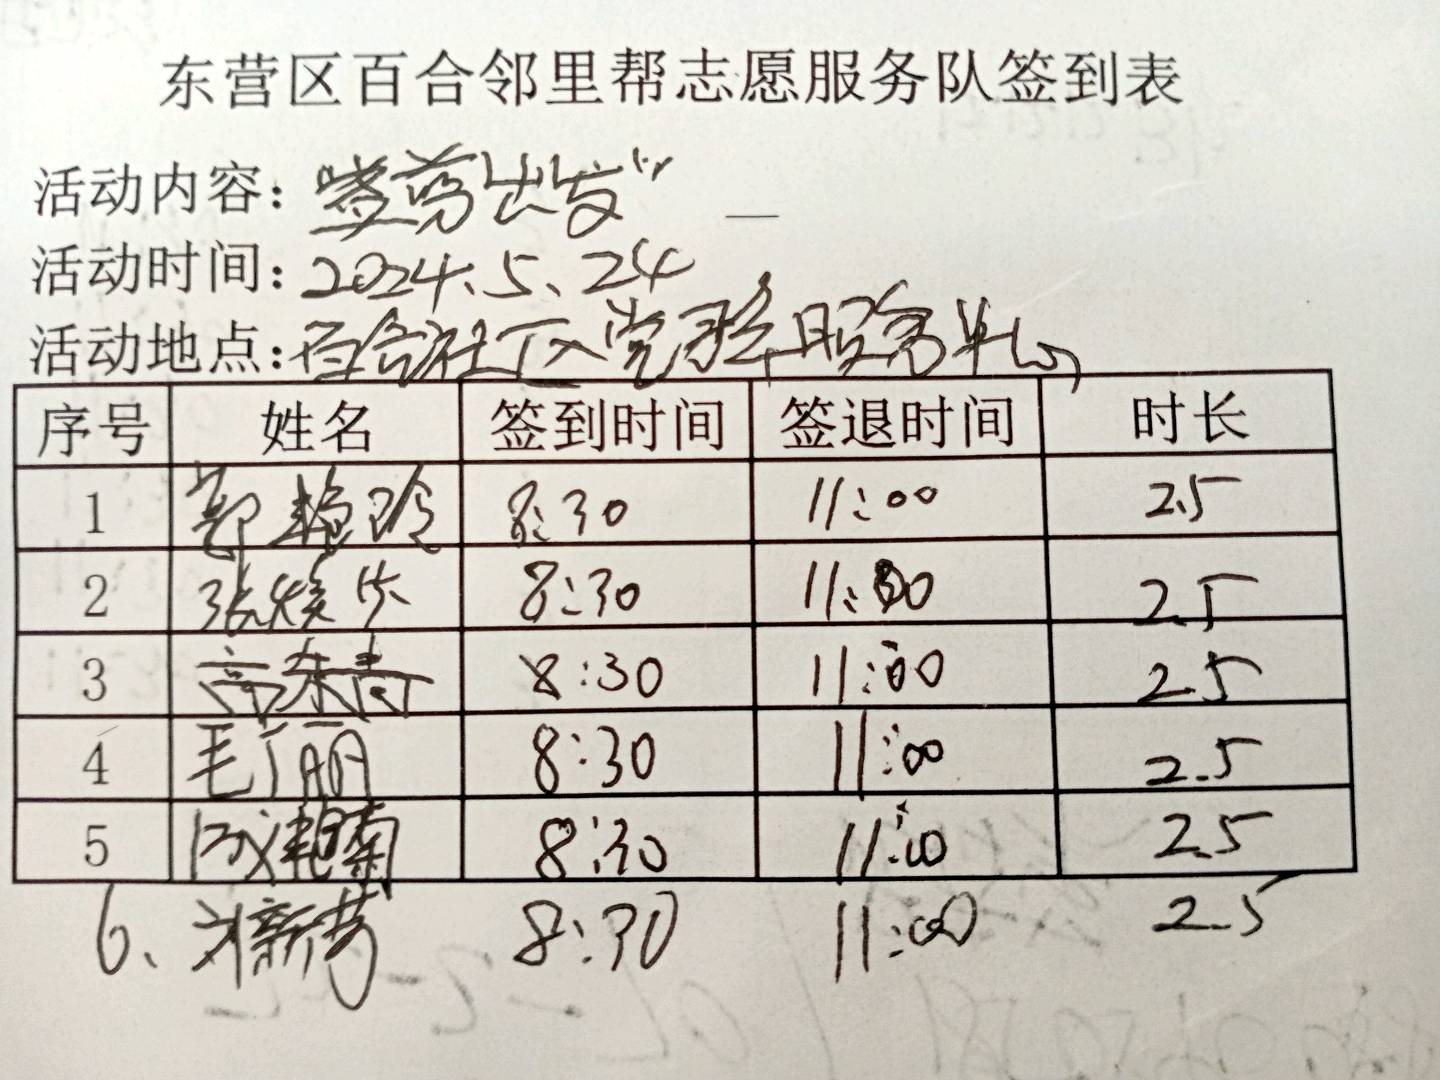 东营区百合邻里帮志愿服务队签到表
活动内容: “剪出发”
活动时间: 2024.5.24
活动地点: 百合社区党群服务中心
序号 姓名 签到时间 签退时间 时长
1 郭艳玲 8:30 11:00 2.5
2 张 8:30 11:00 2.5
3 高东青 8:30 11:00 2.5
4 毛丽丽 8:30 11:00 2.5
5 艳菊 8:30 11:00 2.5
6、刘新芳 8:30 11:00 2.5